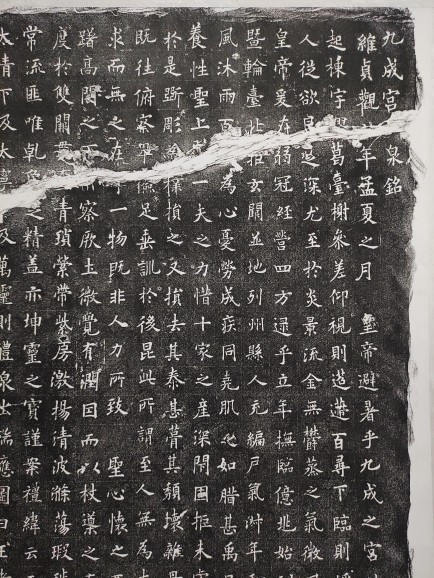 九成宮泉銘
維貞觀年孟夏之月 皇帝避暑乎九成之宮
起棟宇葛臺榭參差仰視則迢遰百尋下臨則
人從欲深尤至於炎景流金無鬱蒸之氣微
皇帝爰在弱冠經營四方逮乎立年撫臨億兆始
暨輪臺北拒玄闕並地列州縣人充編戶氣淑年
風沐雨百為心憂勞成疾同堯肌之如腊甚禹
養性聖上一夫之力惜十家之產深閇固拒未
於是斲彫損之又損去其泰甚葺其頹壞離
既往俯察卑儉足垂訓於後昆此所謂至人無為
求而無之在一物既非人力所致 聖心懷之
躇高閣之下察厥土微覺有潤因而以杖導之
度於雙闕貫青瑣縈帶紫房激揚清波滌蕩瑕
常流匪唯乾之精蓋亦坤靈之寶謹案禮緯云
太清下及太寧及萬靈則醴泉出瑞應圖曰王